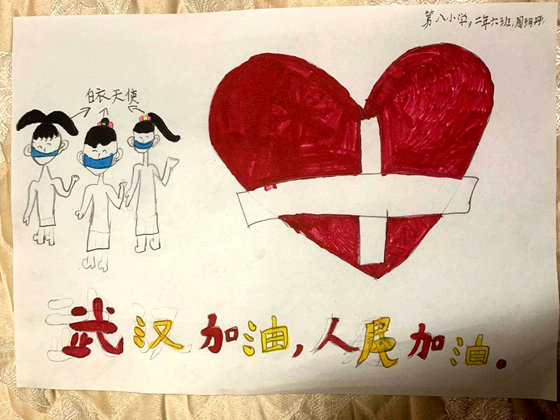 第八小学,二年六班,周
白衣天使
武汉加油,人民加油.